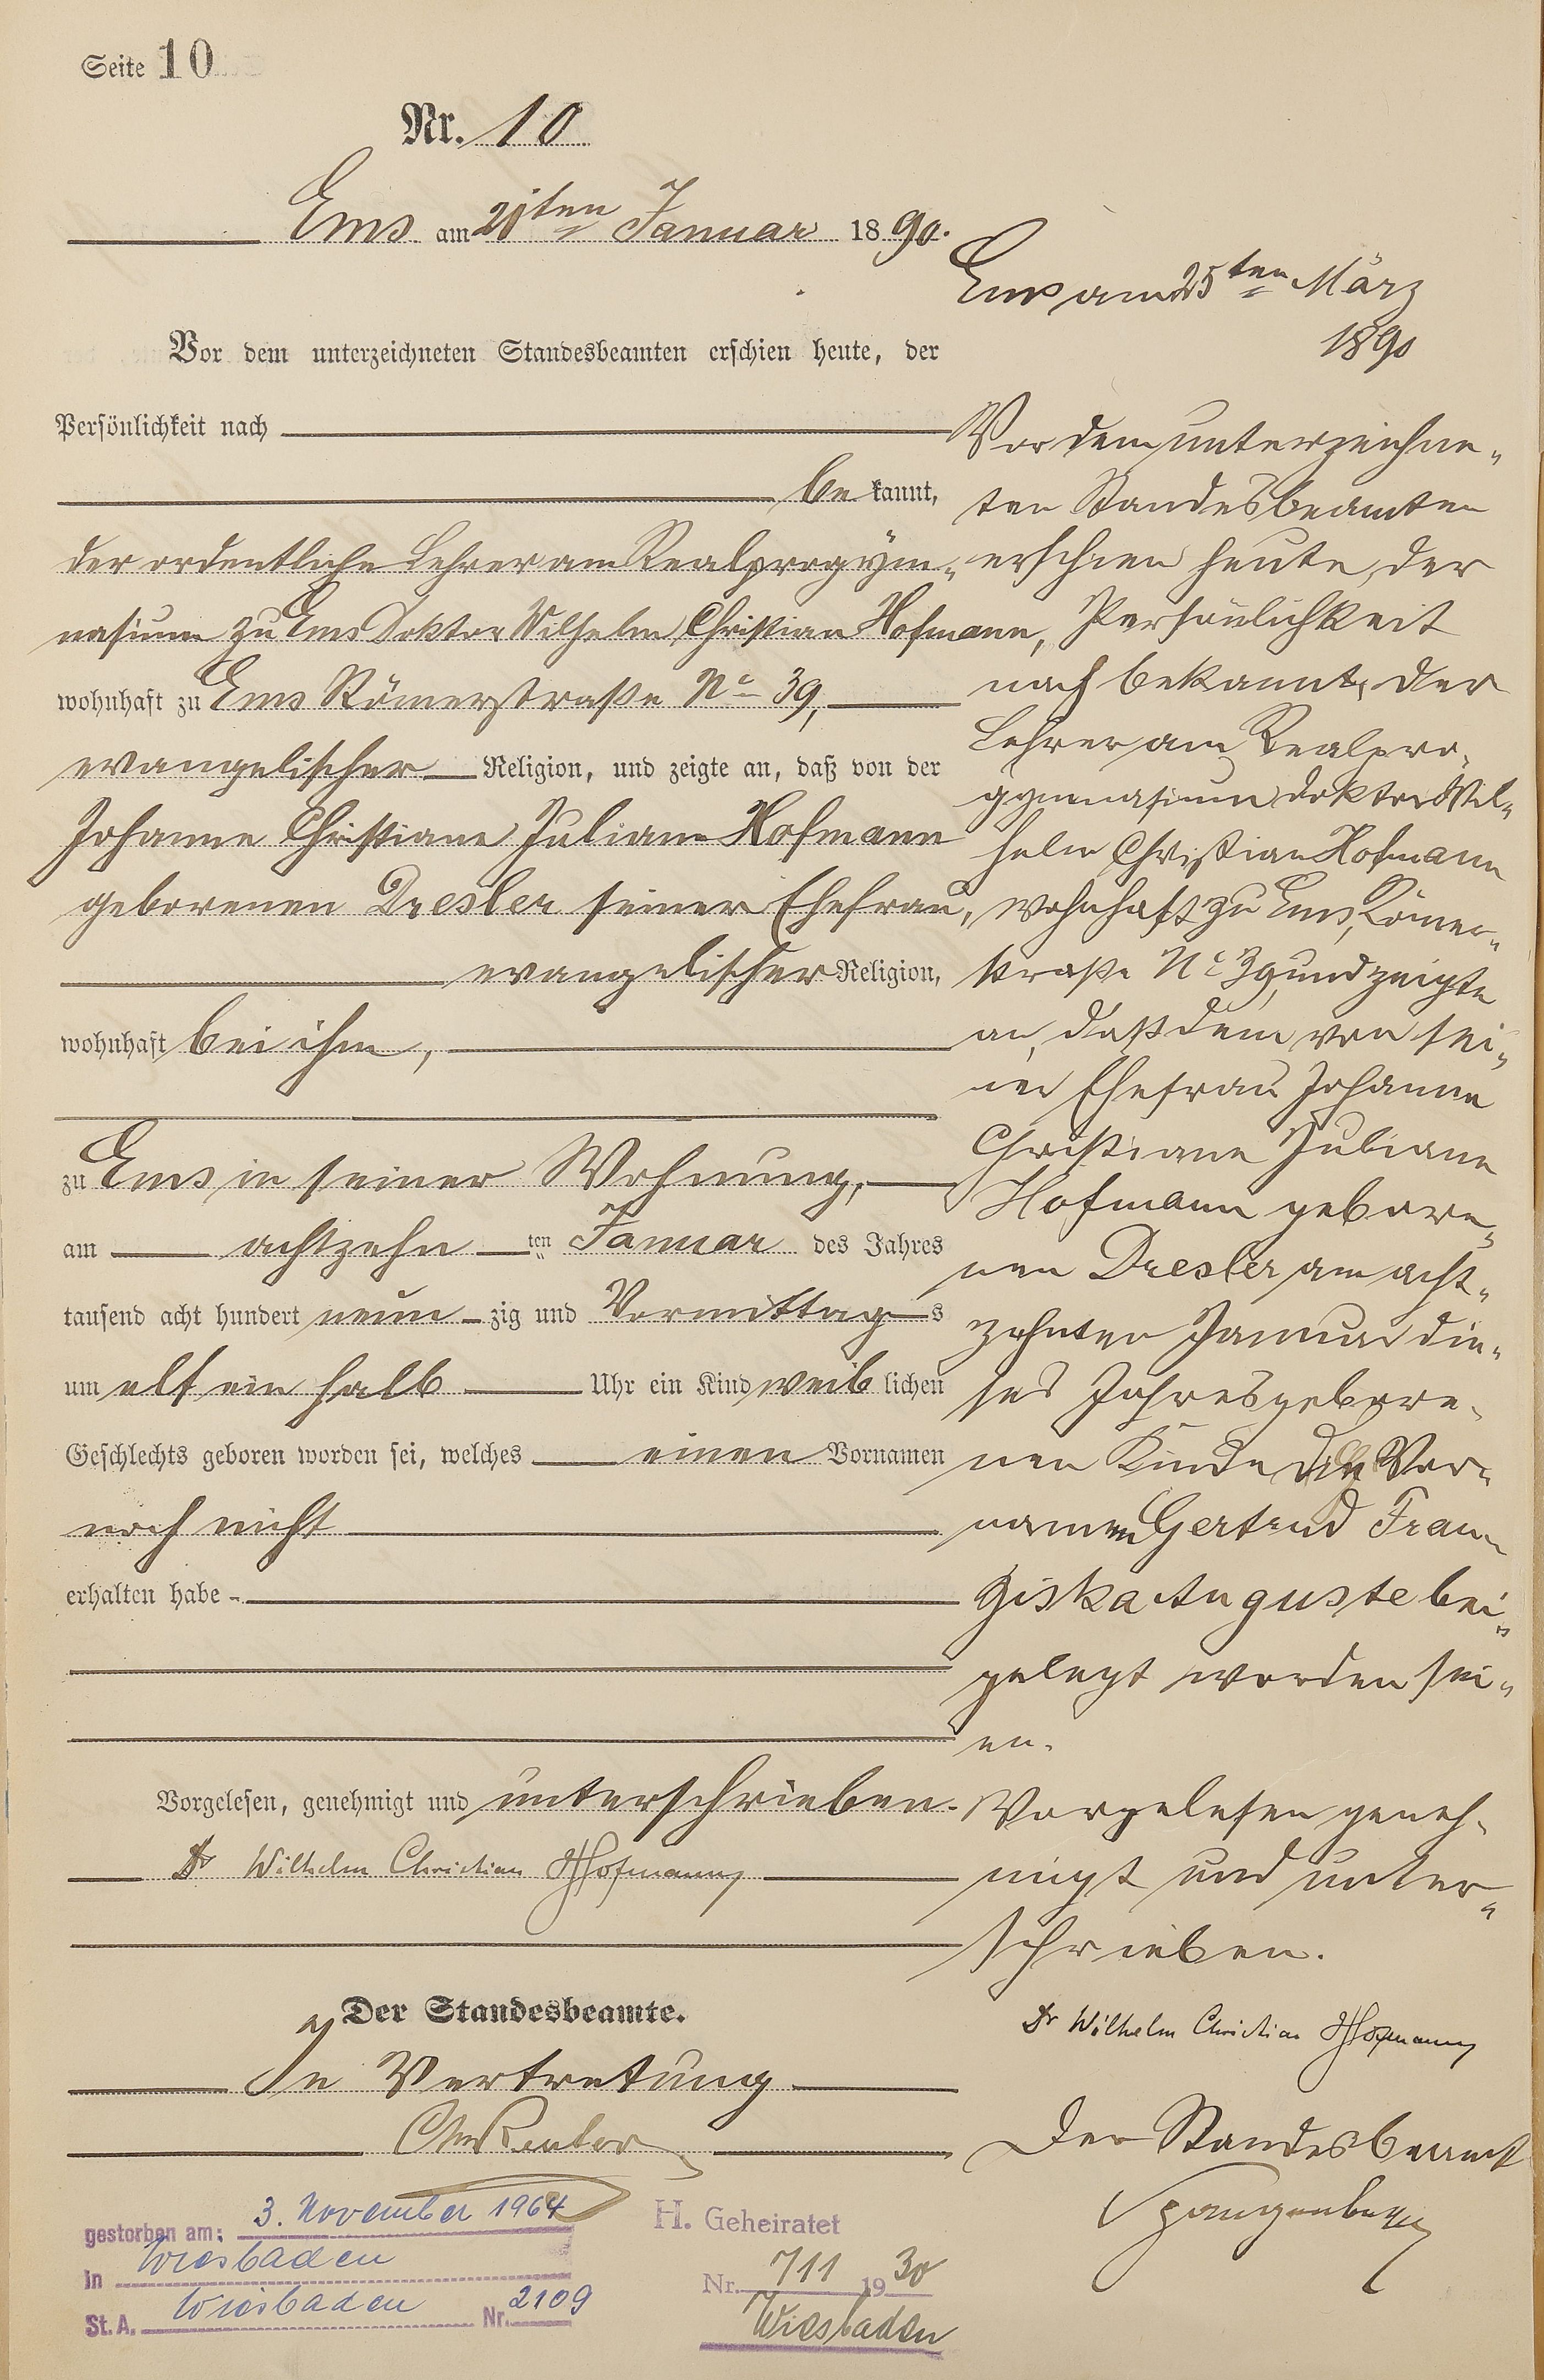 Seite 10
Nr. 10
Ems am 21ten Januar 1890.
Vor dem unterzeichneten Standesbeamten erschien heute, der
Persönlichkeit nach
bekannt,
der ordentliche Lehrer am Realprogym-
nasium zu Ems Doktor Wilhelm Christian Hofmann,
wohnhaft zu Ems Römerstraße No 39,
evangelischer Religion, und zeigte an, daß von der
Johanne Christiane Juliane Hofmann
geborenen Dresler seiner Ehefrau,
evangelischer Religion,
wohnhaft bei ihm,
zu Ems in seiner Wohnung,
am achtzehnten Januar des Jahres
tausend acht hundert neunzig und Vormittags
um elf ein halb Uhr ein Kind weiblichen
Geschlechts geboren worden sei, welches einen Vornamen
noch nicht
erhalten habe
Vorgelesen, genehmigt und unterschrieben.
Dr Wilhelm Christian Hofmann
Der Standesbeamte.
In Vertretung
Ems am 25ten März
1890
Vor dem unterzeichne-
ten Standesbeamten
erschien heute, der
Persönlichkeit
nach bekannt, der
Lehrer am Realpro-
gymnasium Doktor Wil-
helm Christian Hofmann
wohnhaft zu Ems, Römer-
straße No 39, und zeigte
an, daß dem von sei-
ner Ehefrau Johanne
Christiane Juliane
Hofmann gebore-
nen Dresler am acht-
zehnten Januar die-
ses Jahres gebore-
nen Kinde die Vor-
namen Gertrud Fran-
ziska Auguste bei-
gelegt worden sei-
en.
Vorgelesen geneh-
migt und unter-
schrieben.
Dr Wilhelm Christian Hofmann
Der Standesbeamte
Spangenberg
gestorben am: 3. November 1964
in Wiesbaden
St. A. Wiesbaden Nr. 2109
H. Geheiratet
Nr. 711 1930
Wiesbaden